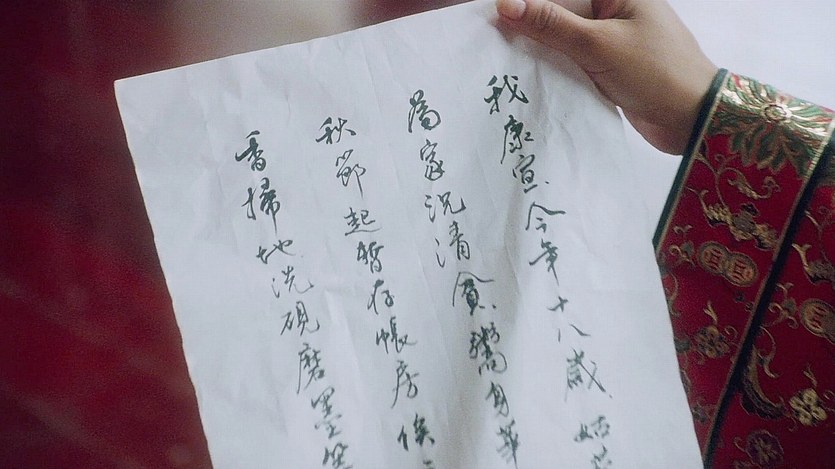 我康宣今年十八歲姑蘇
為家況清貧鬻身華
秋節起暫存帳房俟
香掃地洗硯磨墨等